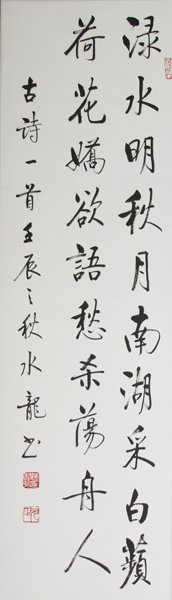 渌水明秋月南湖采白蘋
荷花嬌欲語愁杀蕩舟人
古詩一首壬辰之秋水龍书